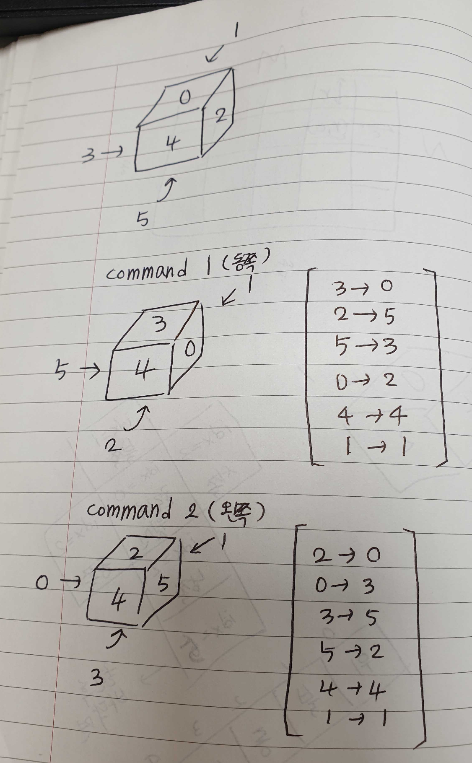 1
0
2
3 →
4
5
command 1 (동쪽)
1
3
0
5 →
4
2
3 → 0
2 → 5
5 → 3
0 → 2
4 → 4
1 → 1
command 2 (왼쪽)
1
2
0 →
4
5
3
2 → 0
0 → 3
3 → 5
5 → 2
4 → 4
1 → 1